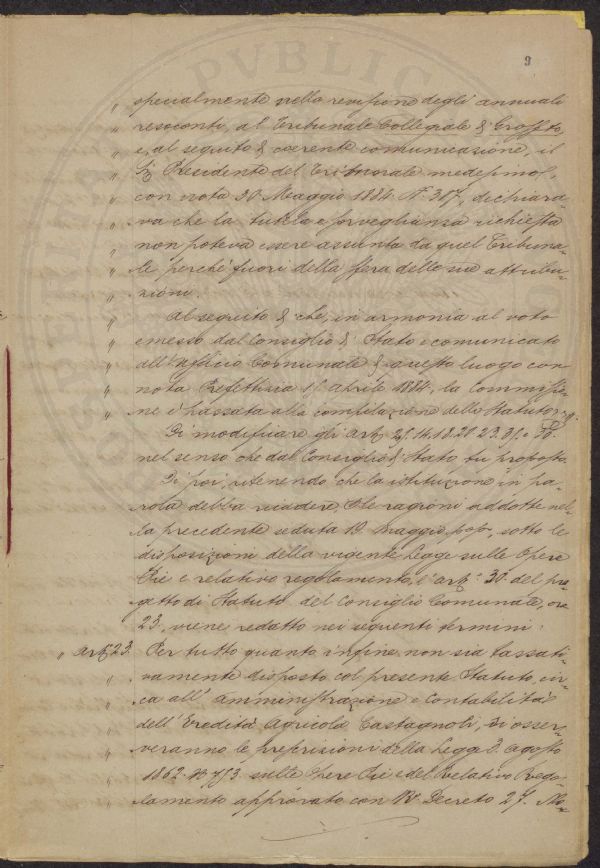 9
„ specialmente nella revisione degli annuali
„ resoconti, al Tribunale Collegiale di Grosseto,
„ e, al seguito di coerente comunicazione, il
„ Sig. Presidente del Tribunale medesimo,
„ con nota 30 Maggio 1884. N. 387, dichiara-
„ va che la tutela e sorveglianza richiesta
„ non poteva essere assunta da quel Tribuna-
„ le perché fuori della sfera delle sue attribu-
„ zioni.
„ Al seguito di che, in armonia al voto
„ emesso dal Consiglio di Stato e comunicato
„ all'Ufficio Comunale di questo luogo con
„ nota Prefettizia Aprile 1884, la Commissio-
„ ne è passata alla compilazione dello Statuto
Di modificare gli art. 14. 18. 20. 23.
nel senso che dal Consiglio di Stato, fu proposto.
Di poi, ritenendo che la istituzione in pa-
rola debba risiedere, le ragioni addotte nel-
la precedente seduta 19 Maggio sotto le
disposizioni della vigente Legge sulle Opere
Pie e relativo regolamento, l'art. 30. del pro-
getto di Statuto del Consiglio Comunale, ora
23, viene redatto nei seguenti termini:
„ Art. 23. Per tutto quanto infine non sia tassati-
„ vamente disposto col presente Statuto, cir-
„ ca all'amministrazione e contabilità
„ dell'Eredità Agricola Castagnoli, si osser-
„ veranno le prescrizioni della Legge 3. Agosto
„ 1862. N. 753 sulle Opere Pie e del relativo Rego-
„ lamento approvato con R. Decreto 27. No-